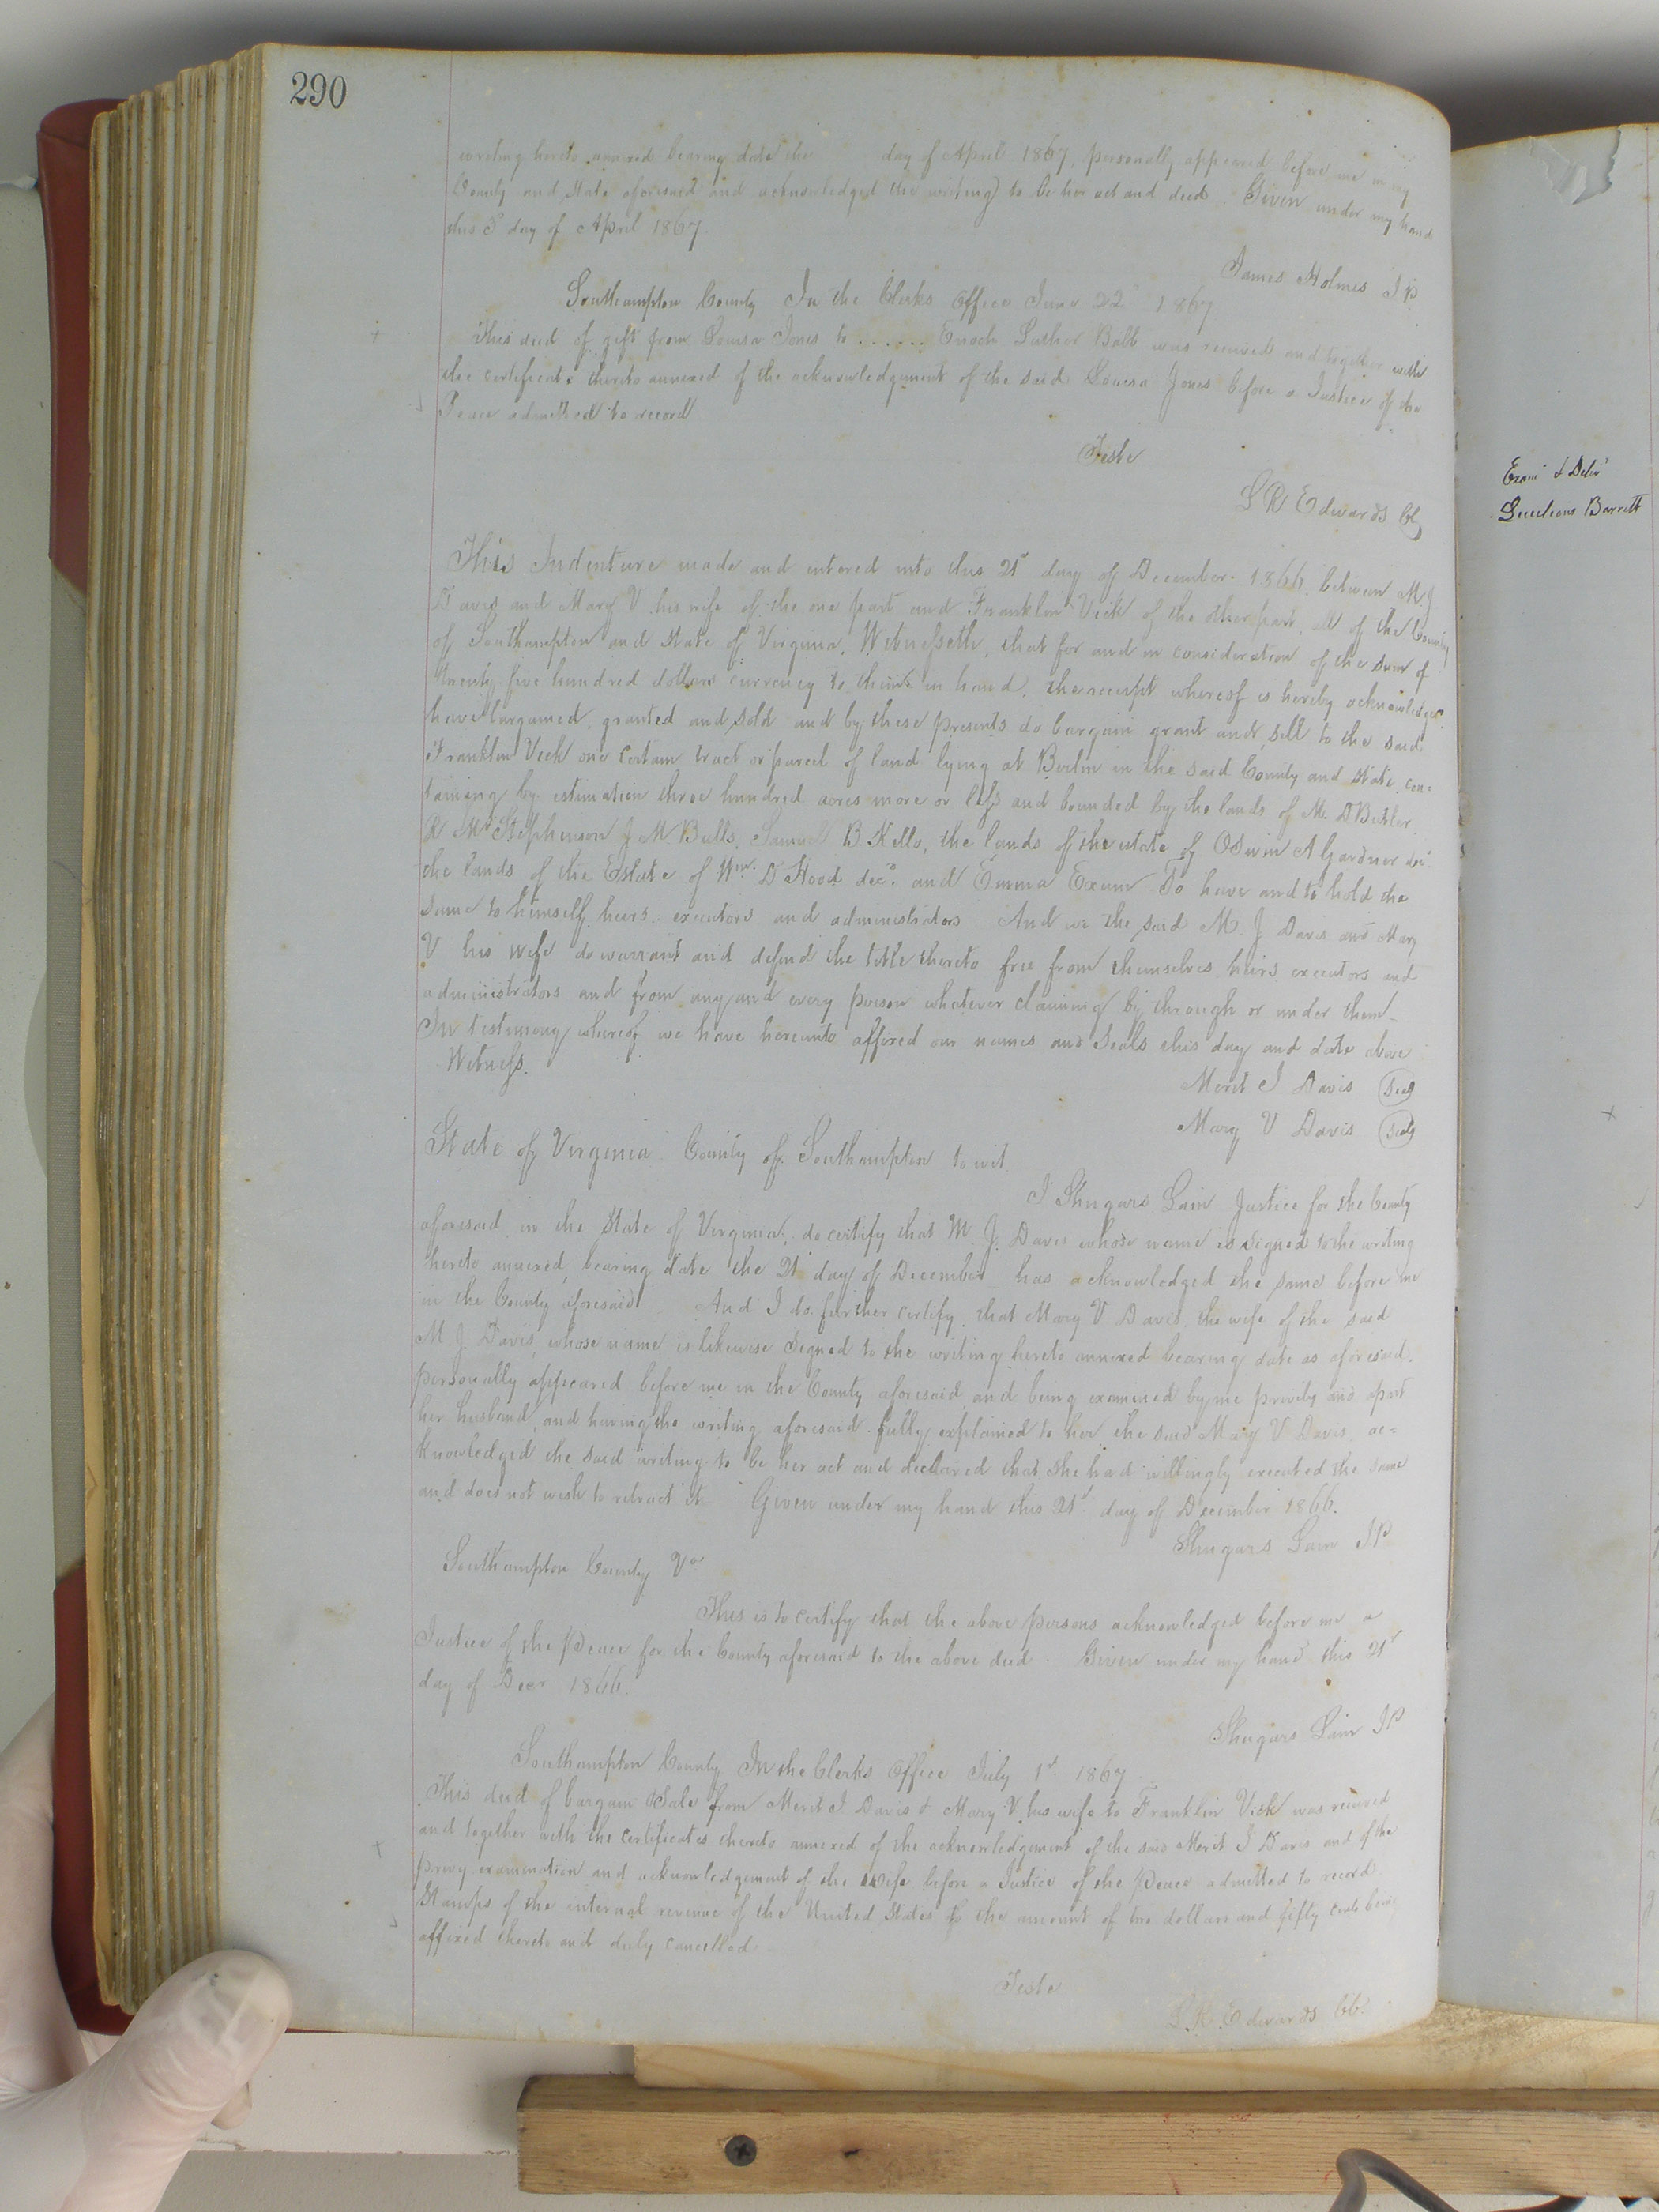 290
writing hereto annexed bearing date the day of April 1867, personally appeared before me in my
County and State aforesaid and acknowledged the writing to be her act and deed. Given under my hand
this 5th day of April 1867.
James Holmes J.P.
Southampton County In the Clerks Office June 22d 1867
This deed of gift from Louisa Jones to ...... Enoch Luther Babb was received and together with
the certificate thereto annexed of the acknowledgment of the said Louisa Jones before a Justice of the
Peace admitted to record
Teste
L R Edwards Clk
This Indenture made and entered into this 21st day of December 1866, between M. J.
Davis and Mary V. his wife of the one part and Franklin Vick of the other part, all of the County
of Southampton and State of Virginia, Witnesseth, that for and in consideration of the sum of
Twenty five hundred dollars currency to them in hand, the receipt whereof is hereby acknowledged
have bargained, granted and sold and by these presents do bargain grant and sell to the said
Franklin Vick one certain tract or parcel of land lying at Berlin in the said County and State con=
taining by estimation three hundred acres more or less and bounded by the lands of M. D Butler
R M Stephenson J M Butts, Samuel B. Kello, the lands of the estate of Oswin A Gardner dec
the lands of the Estate of Wm D Hood decd. and Emma Exum To have and to hold the
same to himself heirs executors and administrators And we the said M. J Davis and Mary
V his wife do warrant and defend the title thereto free from themselves heirs executors and
administrators and from any and every person whatever claiming by through or under them
In testimony whereof we have hereunto affixed our names and Seals this day and date above
Witness. Merit J Davis Seal
Mary V Davis Seal
State of Virginia County of Southampton to wit
I Shugars Lain Justice for the County
aforesaid in the State of Virginia, do certify that M. J. Davis whose name is signed to the writing
hereto annexed, bearing date the 21 day of December has acknowledged the same before me
in the County aforesaid And I do further certify that Mary V Davis, the wife of the said
M. J. Davis, whose name is likewise signed to the writing hereto annexed bearing date as aforesaid,
personally appeared before me in the County aforesaid and being examined by me privily and apart
her husband, and having the writing aforesaid fully explained to her she said Mary V Davis ac=
knowledged the said writing to be her act and declared that she had willingly executed the same
and does not wish to retract it Given under my hand this 21st day of December 1866.
Shugars Lain J.P.
Southampton County Va
This is to certify that the above persons acknowledged before me a
Justice of the Peace for the County aforesaid to the above deed. Given under my hand this 21st
day of Decr 1866.
Shugars Lain JP
Southampton County In the Clerks Office July 1st 1867
This deed of bargain & Sale from Merit J. Davis & Mary V. his wife to Franklin Vick was received
and together with the certificates thereto annexed of the acknowledgement of the said Merit J Davis and of the
privy examination and acknowledgement of the wife before a Justice of the Peace admitted to record
Stamps of the internal revenue of the United States to the amount of two dollars and fifty cents being
affixed thereto and duly cancelled
Teste
L. R. Edwards Clk
Exam & Delivd
Barrett